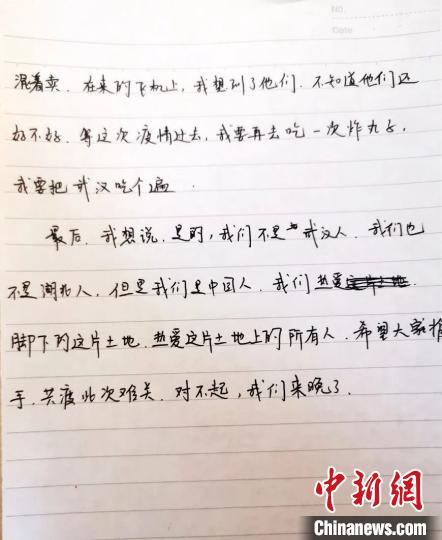 NO.
Date
混着卖. 在来的飞机上, 我想到了他们. 不知道他们还
好不好. 等这次疫情过去, 我要再去吃一次炸丸子,
我要把武汉吃个遍
最后, 我想说, 是的, 我们不是武汉人. 我们也
不是湖北人, 但是我们是中国人. 我们热爱这片土地
脚下的这片土地. 热爱这片土地上的所有人. 希望大家携
手. 共渡此次难关. 对不起, 我们来晚了.
中新网
Chinanews.com